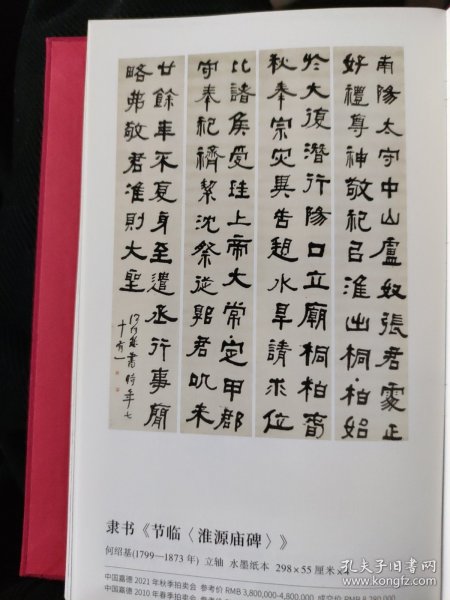 南陽太守中山盧奴張君處正
好禮尊神敬祀㠯淮出桐柏始
於大復潛行陽口立廟桐柏春
秋奉宗灾異告愬水旱請求位
比諸矦受珪上帝大常定甲郡
守奉祀濟絜沈祭從郭君㠯来
廿餘年不夏身至遣丞行事簡
略弗敬君淮則大聖
書時年七
十有一
隶书《节临〈淮源庙碑〉》
何绍基(1799—1873年) 立轴 水墨纸本 298×55厘米×
中国嘉德 2021年秋季拍卖会 参考价 RMB 3,800,000-4,800,000 成交价
中国嘉德 2010年春季拍卖会 参考价 RMB 8,280,000
孔夫子旧书网